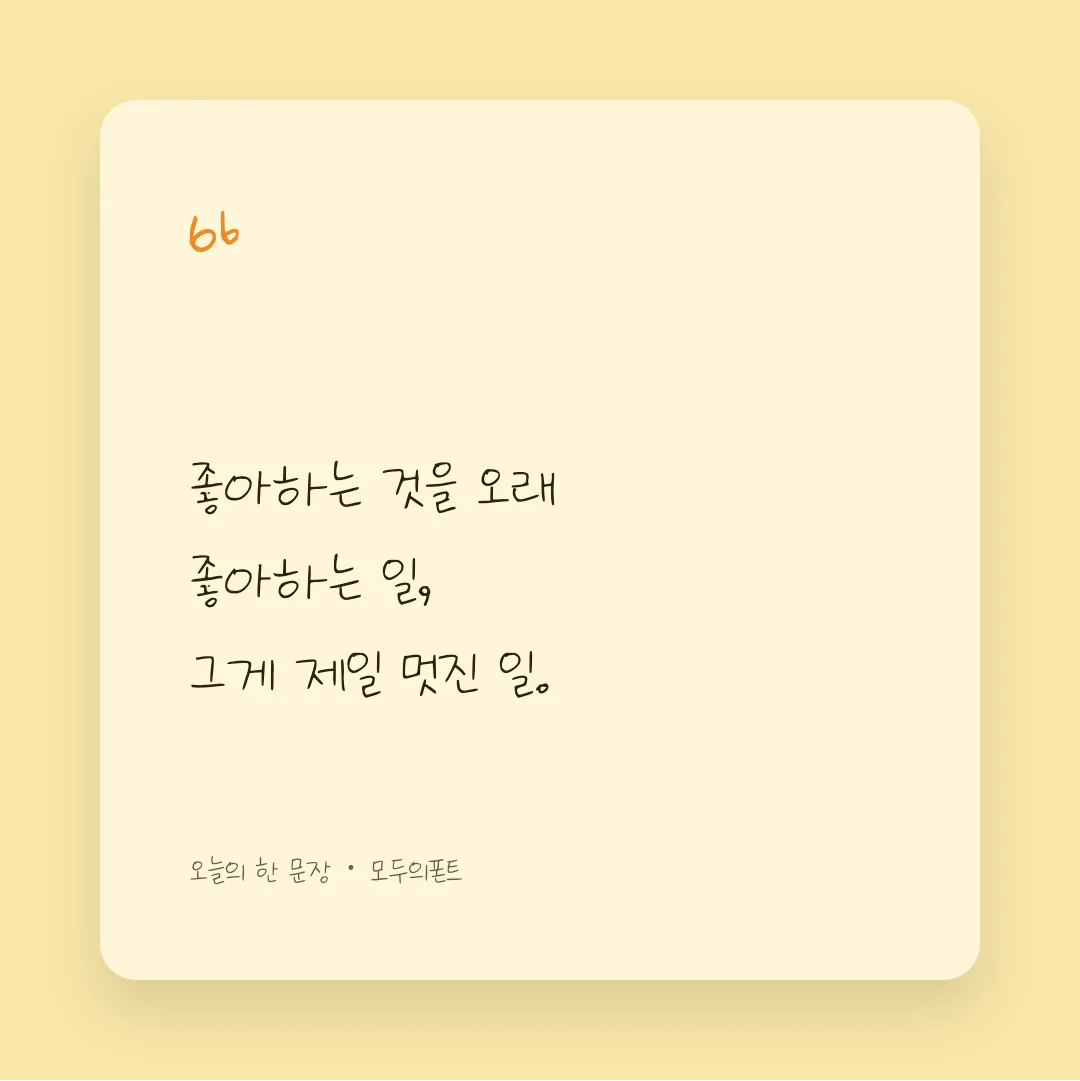 “
좋아하는 것을 오래
좋아하는 일,
그게 제일 멋진 일.
오늘의 한 문장 • 모두의폰트